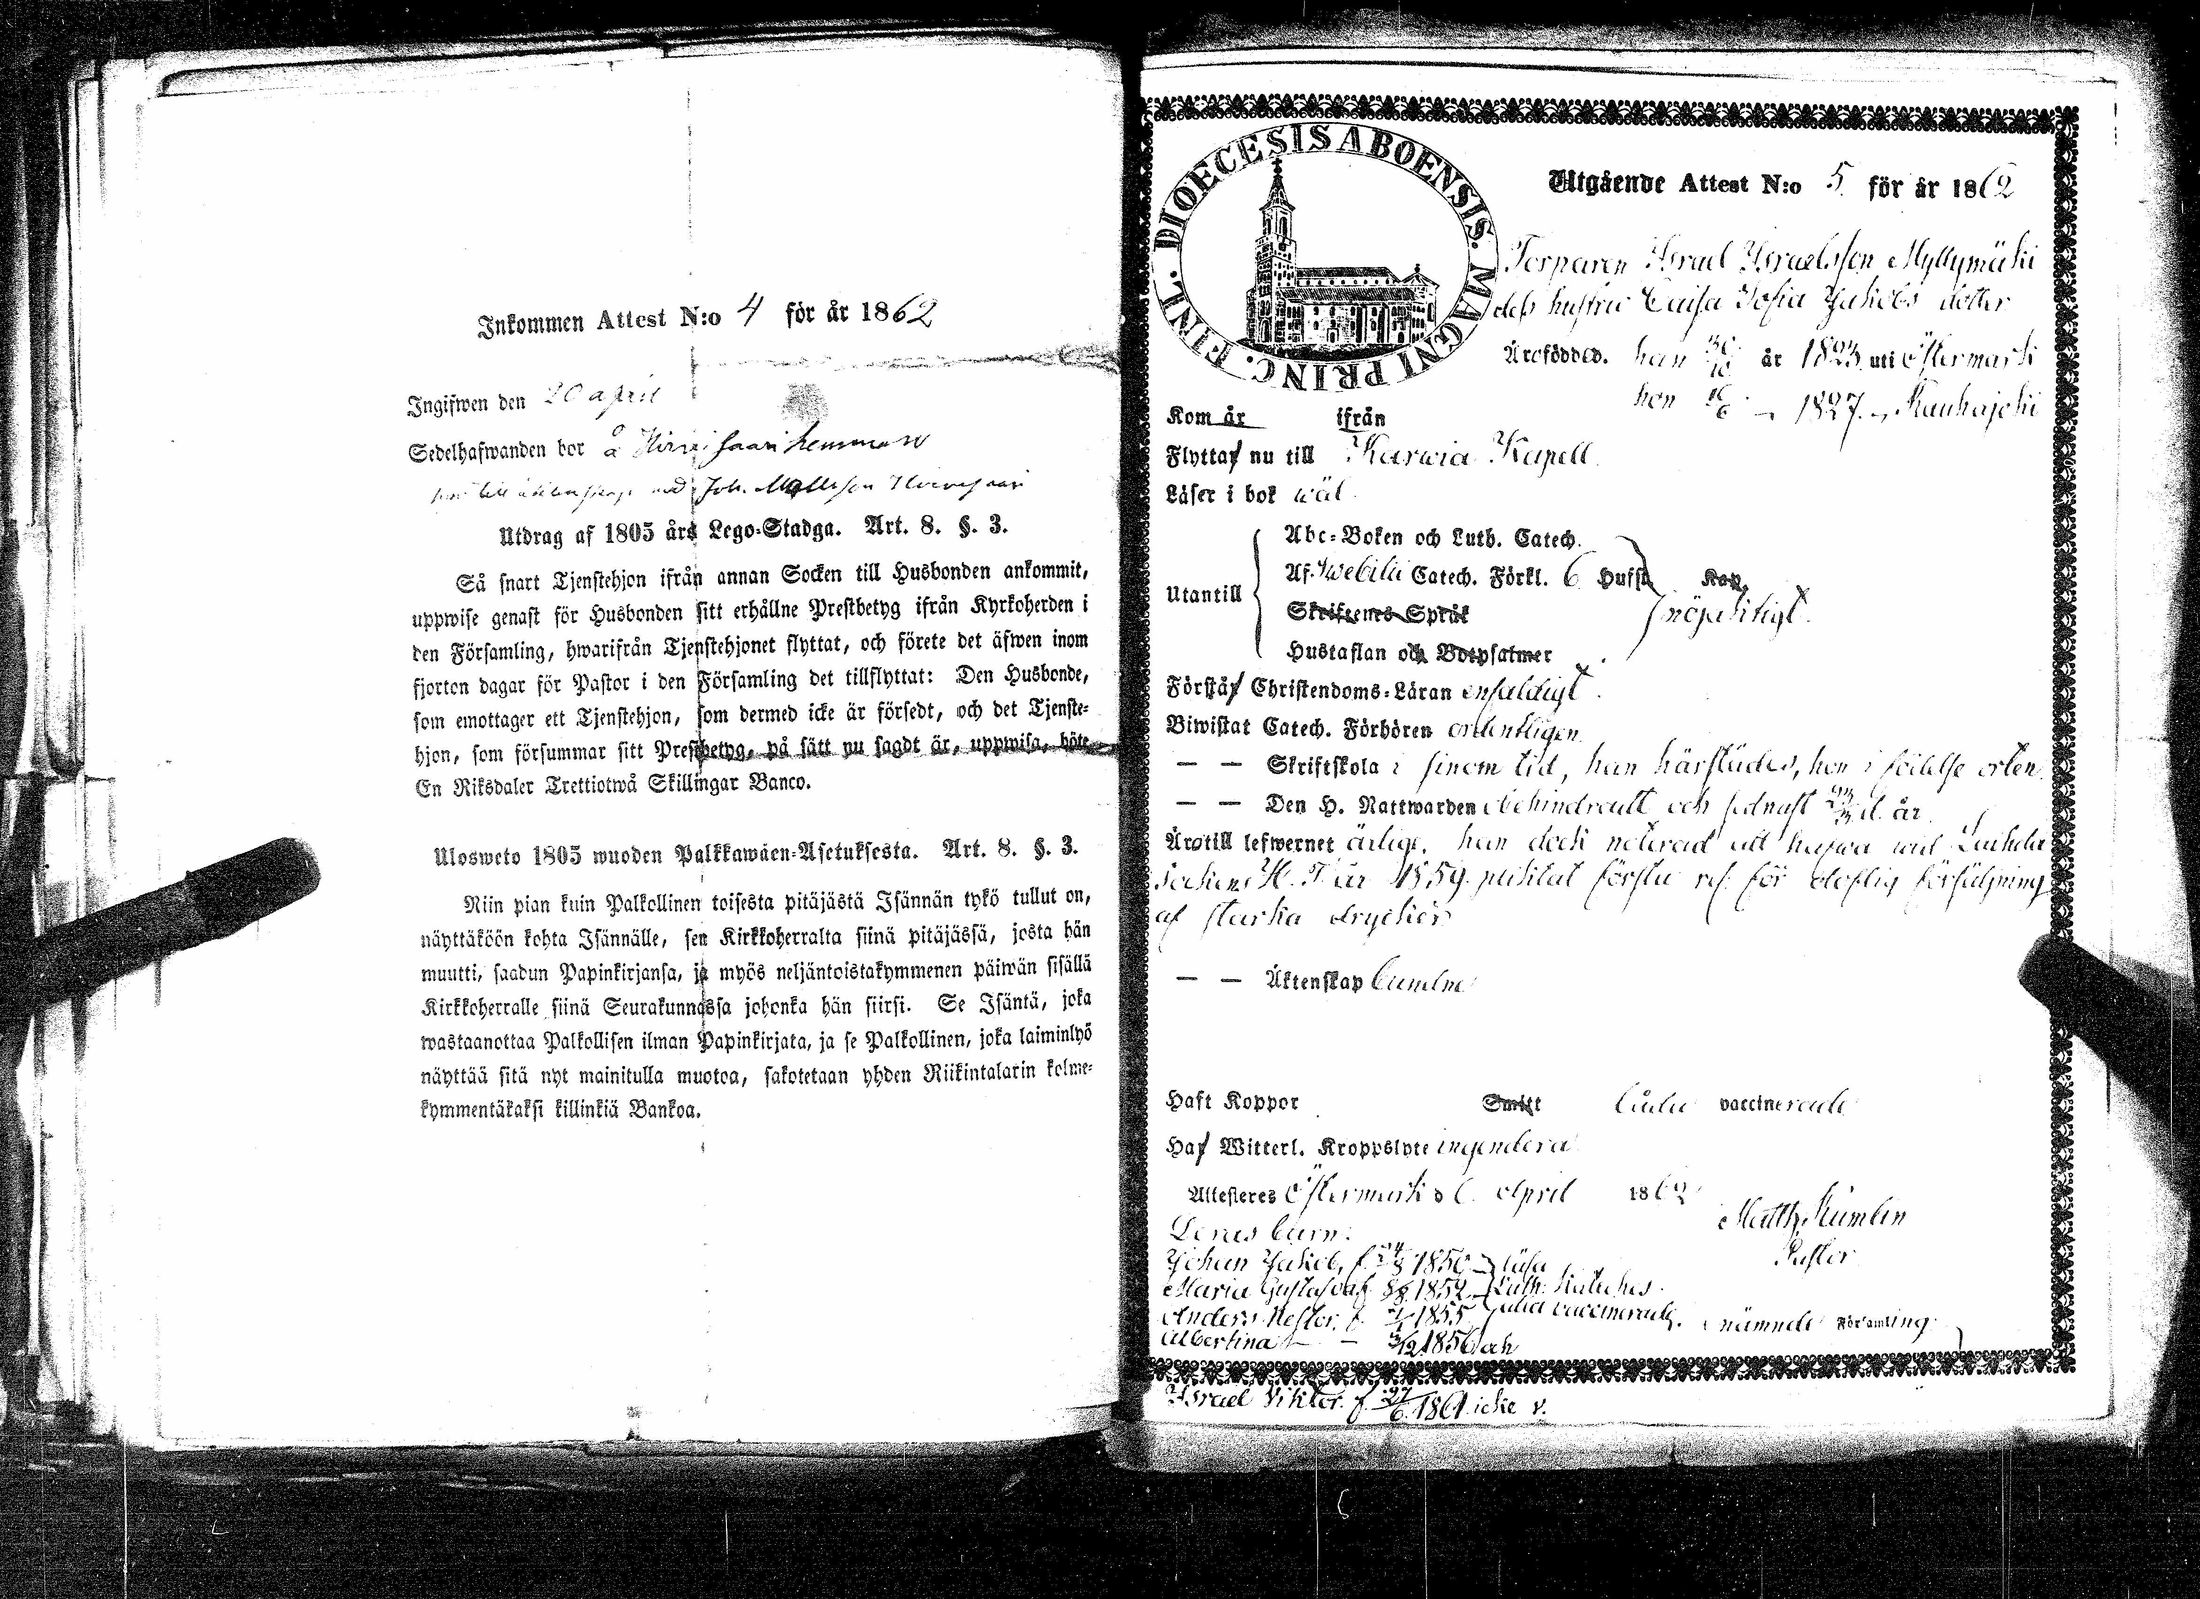 Inkommen Attest N:o 4 för år 1862
Ingifwen den 20 april
Sedelhafwanden bor å Hirvisaari hemman
Joh. Mattsson Hirvisaari
Utdrag af 1805 års Lego-Stadga. Art. 8. §. 3.
Så snart Tjenstehjon ifrån annan Socken till Husbonden ankommit,
uppwise genast för Husbonden sitt erhållne Prestbetyg ifrån Kyrkoherden i
den Församling, hwarifrån Tjenstehjonet flyttat, och förete det äfwen inom
fjorton dagar för Pastor i den Församling det tillflyttat: Den Husbonde,
som emottager ett Tjenstehjon, som dermed icke är försedt, och det Tjenste-
hjon, som försummar sitt Prestbetyg, på sätt nu sagdt är, uppwisa, böte
En Riksdaler Trettiotwå Skillingar Banco.
Ulosweto 1805 wuoden Palkkawäen-Asetuksesta. Art. 8. §. 3.
Niin pian kuin Palkollinen toisesta pitäjästä Isännän tykö tullut on,
näyttäköön kohta Isännälle, sen Kirkkoherralta siinä pitäjässä, josta hän
muutti, saadun Papinkirjansa, ja myös neljäntoistakymmenen päiwän sisällä
Kirkkoherralle siinä Seurakunnassa johonka hän siirsi. Se Isäntä, joka
wastaanottaa Palkollisen ilman Papinkirjata, ja se Palkollinen, joka laiminlyö
näyttää sitä nyt mainitulla muotoa, sakotetaan yhden Riikintalarin kolme-
kymmentäkaksi killinkiä Bankoa.
DIOECESIS ABOENSIS. MAGNI PRINC. FINL.
Utgående Attest N:o 5 för år 1862
Torparen Israel Israelsson Myllymäki
dess hustru Caisa Sofia Jakobs dotter
Ärofödded. han 30/10 år 1823 uti Östermark
hon 16/6 – 1827 – Kauhajoki
Kom år ifrån
Flyttaf nu till Karwia Kapell
Läser i bok wäl
Utantill
Abc-Boken och Luth. Catech.
Af Swebilii Catech. Förkl. 6 Hufst. Kap.
Skriftenes Språk
nöjaktigt
Hustaflan och Botpsalmer
Förstår Christendoms-Läran enfaldigt.
Biwistat Catech. Förhören ordentligen
— — Skriftskola i sinom tid, han härstädes, hon i födelse orten
— — Den H. Nattwarden obehindradt och sednast d. år
Ärotill lefwernet ärlige, han dock noterad att hafwa wid
Sockens H. T. år 1859 pliktat första res. för oloflig försäljning
af starka drycker
— — Äktenskap bundne
Haft Koppor Smitt båda vaccinerade
Haf Witterl. Kroppslyte ingendera
Attesteres Östermark d. 6 April 1862
Deras barn: Matth. Kumlin
Pastor
Johan Jakob, f. 1850 läsa
Maria Gustafva f. 1852 Luth. Kateches
Anders Nestor f. 1855 vaccinerade. nämnde Församling
Albertina f – 3/12 1856 och
Israel Viktor. f. 27/6 1861 icke v.
6